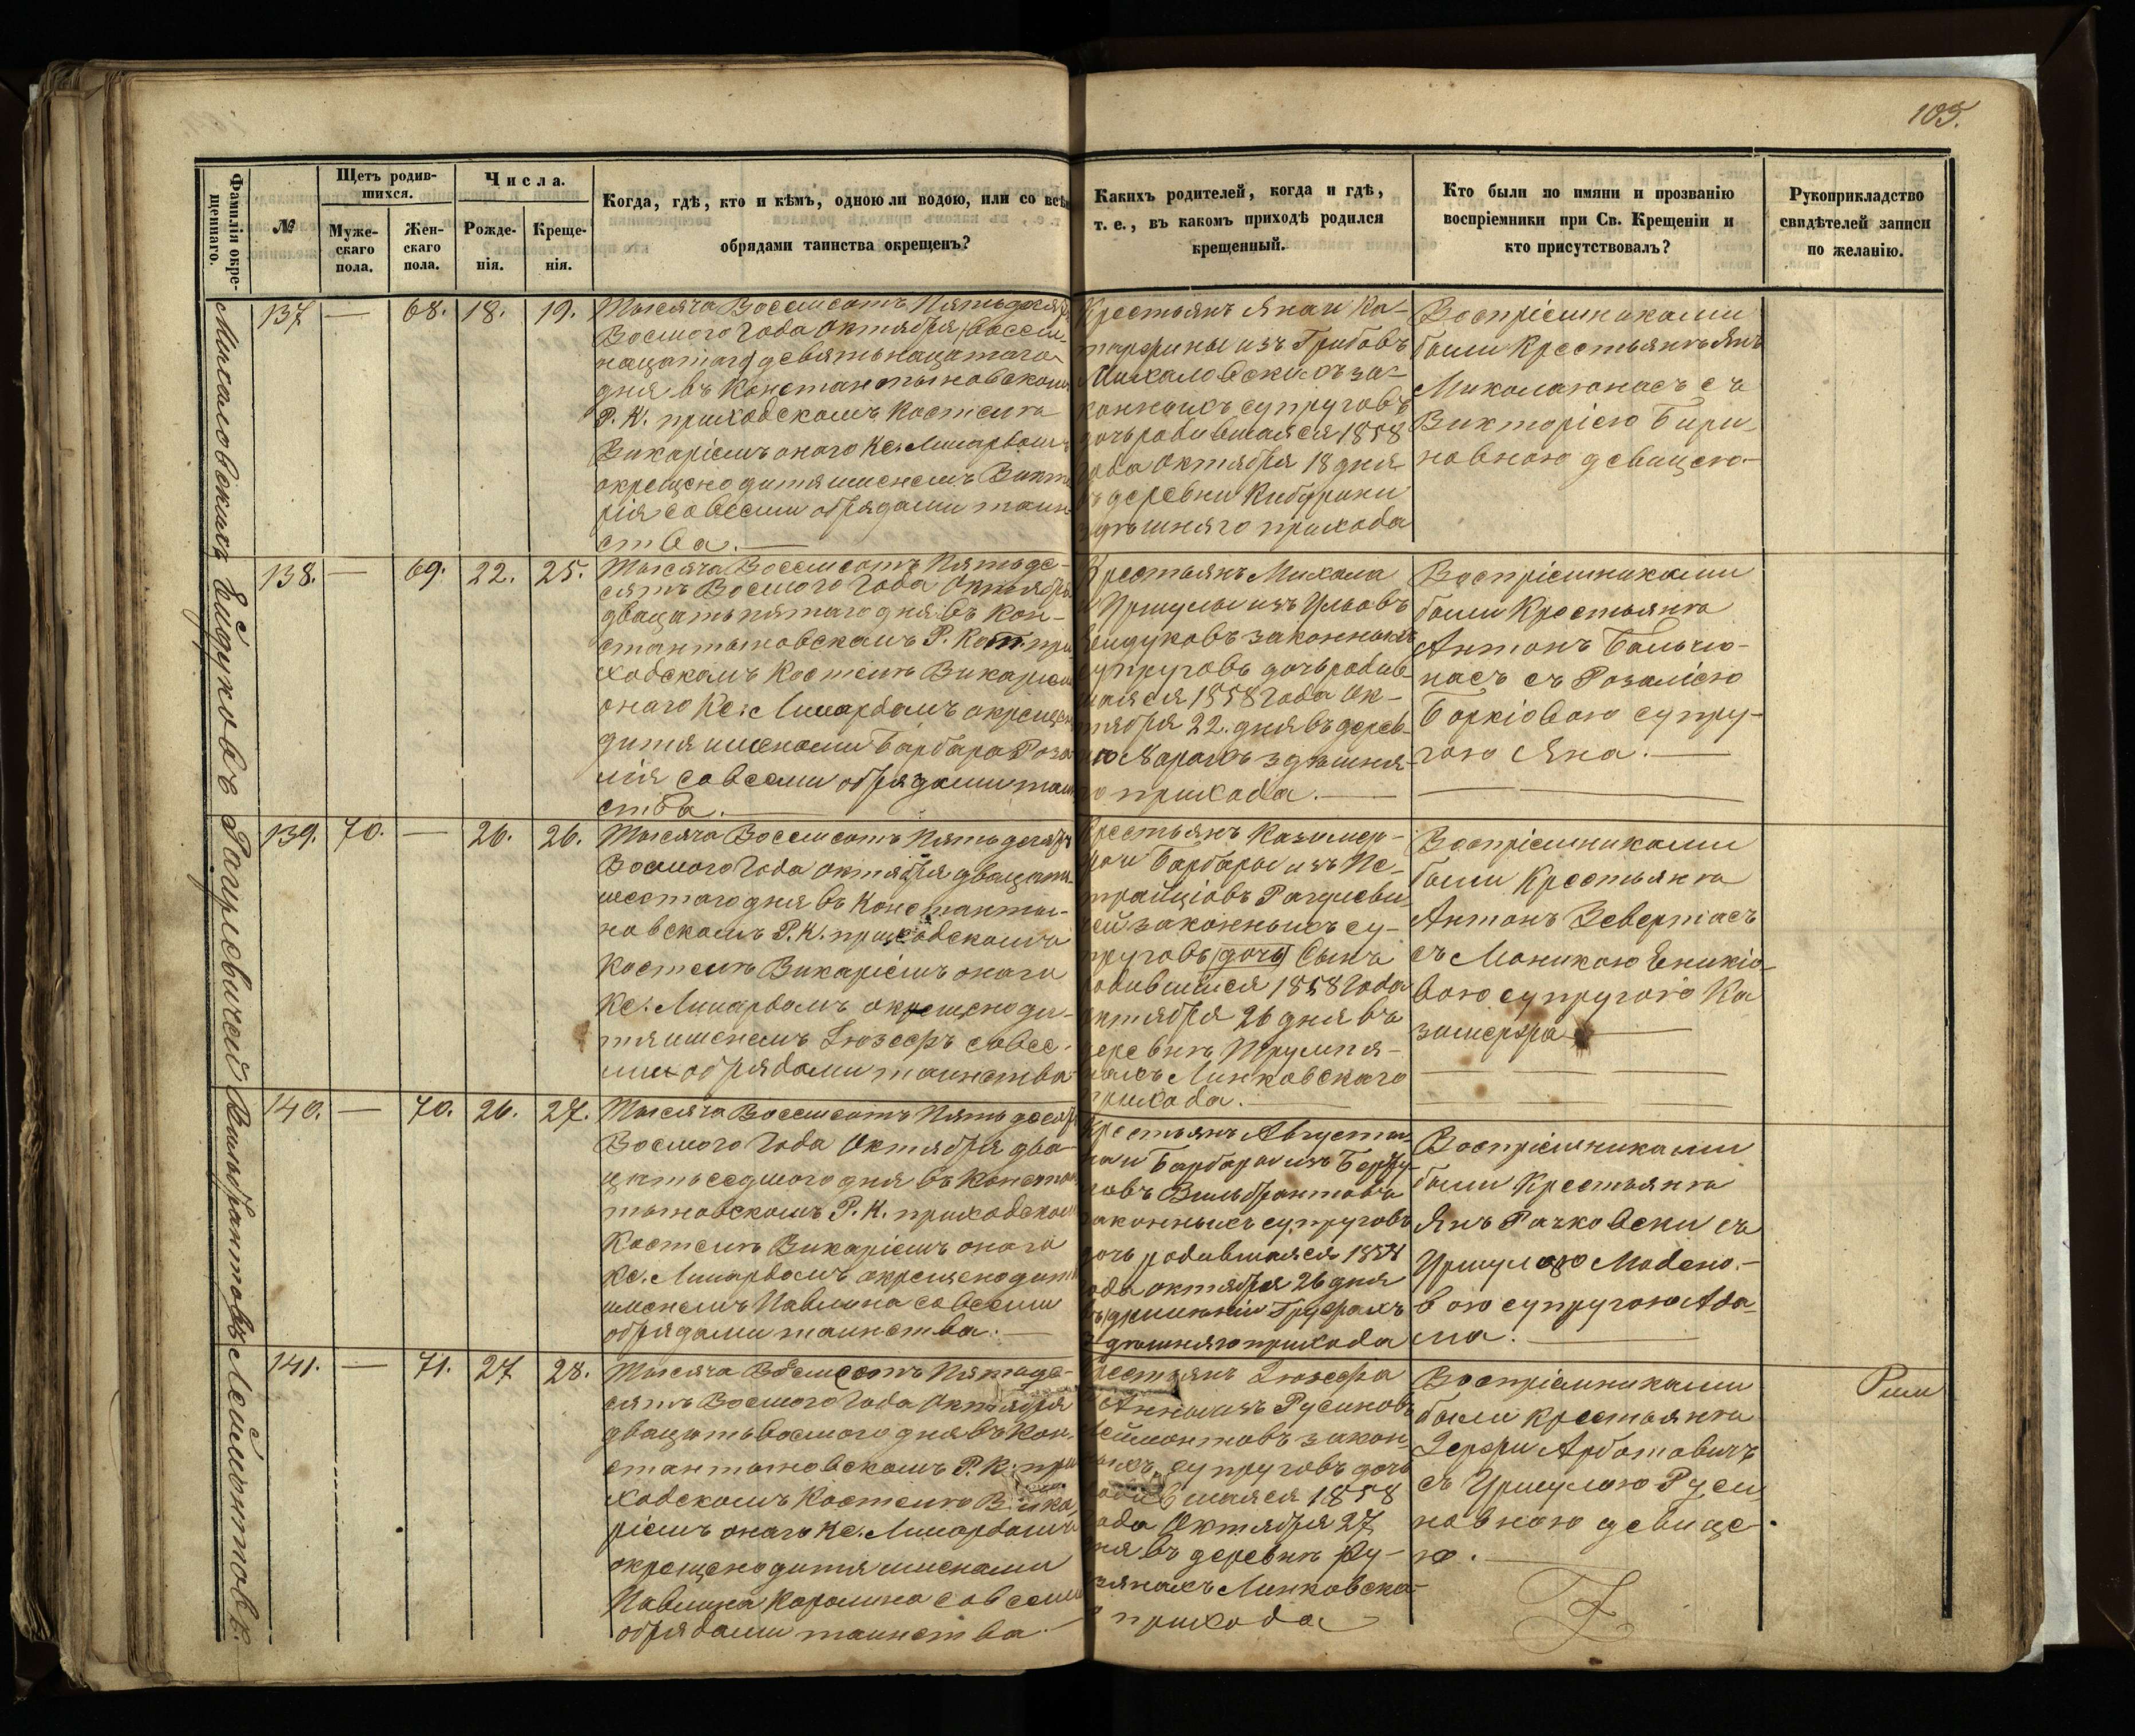 105.
Фамилія окре-
щеннаго.
№
Щетъ родив-
шихся.
Муже-
скаго
пола.
Жен-
скаго
пола.
Числа.
Рожде-
нія.
Креще-
нія.
Когда, гдѣ, кто и кѣмъ, одною ли водою, или со всѣ
обрядами таинства окрещенъ?
Какихъ родителей, когда и гдѣ,
т. е., въ какомъ приходѣ родился
крещенный.
Кто были по имяни и прозванію
воспріемники при Св. Крещеніи и
кто присутствовалъ?
Рукоприкладство
свидѣтелей записи
по желанію.
Михаловскихъ
137 — 68. 18. 19.
Тысяча Восемсотъ Пятьдеся
Восмого Года Октября восем
нацатого девятьнацатого
дня въ Константыновскомъ
Р. К. приходскомъ Костелѣ
Викаріемъ онаго Кс.
окрещено дитя именемъ Викто
рія со всеми обрядами таин
ства. —
Крестьянъ Яна и Ка-
тарзины изъ Грибовъ
Михаловскихъ за-
конныхъ супруговъ
дочь родившаяся 1858
года Октября 18 дня
въ деревни
здѣшняго прихода
Воспріемниками
были Крестьянѣ Янъ
Миколаюнасъ съ
Викторіею Бири-
новною девицею. —
Ейдуковъ
138. — 69. 22. 25.
Тысяча Восемсотъ Пятьде-
сятъ Восмого Года Октября
двацатьпятаго дня въ Кон-
стантыновскомъ Р. Кат. при
ходскомъ Костелѣ Викаріем
онаго Кс: окрещен
дитя именами Барбара Роза
лія со всеми обрядами таин
ства. —
Крестьянъ Михала
и Уршулы изъ
Ейдуковъ законныхъ
супруговъ дочь родив-
шаяся 1858 Года Ок-
тября 22. дня въ дерев-
здѣшня-
го прихода. —
Воспріемниками
были Крестьянѣ
Антонъ Бальчю-
насъ съ Розаліею
Боркіовою супру-
гою Яна. —
139. 70. — 26. 26.
Тысяча Восемсотъ Пятьдесятъ
Восмого Года Октября двацать
шестого дня въ Константы-
новскомъ Р. К. приходскомъ
Костелѣ Викаріемъ онаго
Кс. окрещено ди-
тя именемъ Іюзефъ со все-
ми обрядами таинства
Крестьянъ Казимер-
Барбары изъ Пе-
законныхъ су-
пруговъ (дочь) Сынъ
родившійся 1858 Года
октября 26 дня въ
деревнѣ
Линковскаго
прихода. —
Воспріемниками
были Крестьянѣ
Антонъ Зевертасъ
съ Моникою
вою супругою Ка
Вильбрантовъ
140. — 70. 26. 27.
Тысяча Восемсотъ Пятьдесят
Восмого Года Октября два-
цатьседмого дня въ Констан
тыновскомъ Р. К. приходском
Костелѣ Викаріемъ онаго
Кс. окрещено дитя
именемъ Павлина со всеми
обрядами таинства. —
Крестьянъ Августы-
на и Барбары изъ
Вильбрантовъ
законныхъ супруговъ
дочь родившаяся 1858
года октября 26 дня
здѣшняго прихода
Воспріемниками
были Крестьянѣ
Янъ Рачковски съ
Уршулею
вою супругою Ада-
ма. —
Леймонтовъ.
141. — 71. 27 28.
Тысяча Восемсотъ Пятьде-
сятъ Восмого Года Октября
двацатьвосмого дня въ Кон-
стантыновскомъ Р. К. при
ходскомъ Костелѣ Вика-
ріемъ онаго Кс.
окрещено дитя именами
Павлина Каролина со всеми
обрядами таинства. —
Крестьянъ Іюзефа
и Анны изъ Русиновъ
Леймонтовъ закон-
ныхъ супруговъ дочь
родившаяся 1858
года Октября 27
дня въ деревнѣ
Линковска-
го прихода
Воспріемниками
были крестьянѣ
съ Уршулею Руси-
новною девице-
ю. —